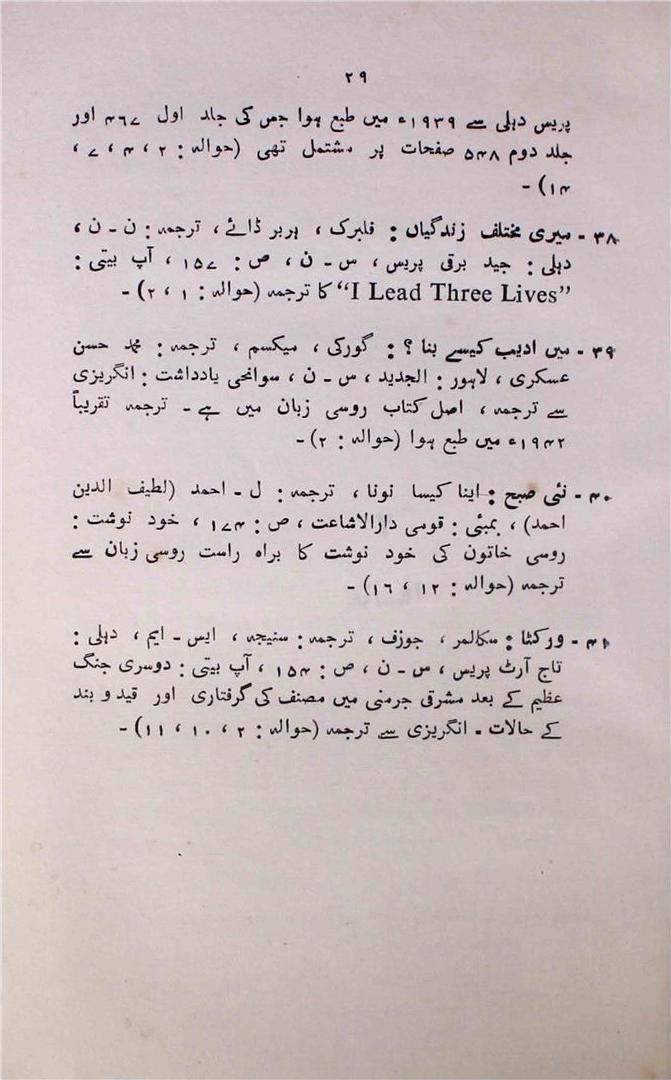 ۲۹
پریس دہلی سے ۱۹۳۹ء میں طبع ہوا جس کی جلد اول ۴۶۷ اور
جلد دوم ۵۴۸ صفحات پر مشتمل تھی (حوالہ : ۲ ، ۴ ، ۷ ،
۱۴) -
۳۸ - میری مختلف زندگیاں : فلبرک ، ہربر ڈائے ، ترجمہ : ن - ن ،
دہلی : جید برقی پریس ، س - ن ، ص : ۱۵۷ ، آپ بیتی :
“I Lead Three Lives” کا ترجمہ (حوالہ : ۱ ، ۲) -
۳۹ - میں ادیب کیسے بنا ؟ : گورکی ، میکسم ، ترجمہ : محمد حسن
عسکری ، لاہور : الجدید ، س - ن ، سوانحی یادداشت : انگریزی
سے ترجمہ ، اصل کتاب روسی زبان میں ہے - ترجمہ تقریباً
۱۹۴۲ء میں طبع ہوا (حوالہ : ۲) -
۴۰ - نئی صبح : اینا کیسا نونا ، ترجمہ : ل - احمد (لطیف الدین
احمد) ، بمبئی : قومی دارالاشاعت ، ص : ۱۷۴ ، خود نوشت :
روسی خاتون کی خود نوشت کا براہ راست روسی زبان سے
ترجمہ (حوالہ : ۱۲ ، ۱۶) -
۴۱ - ورکٹا : سکالمر ، جوزف ، ترجمہ : سنیجہ ، ایس - ایم ، دہلی :
تاج آرٹ پریس ، س - ن ، ص : ۱۵۴ ، آپ بیتی : دوسری جنگ
عظیم کے بعد مشرقی جرمنی میں مصنف کی گرفتاری اور قید و بند
کے حالات - انگریزی سے ترجمہ (حوالہ : ۲ ، ۱۰ ، ۱۱) -